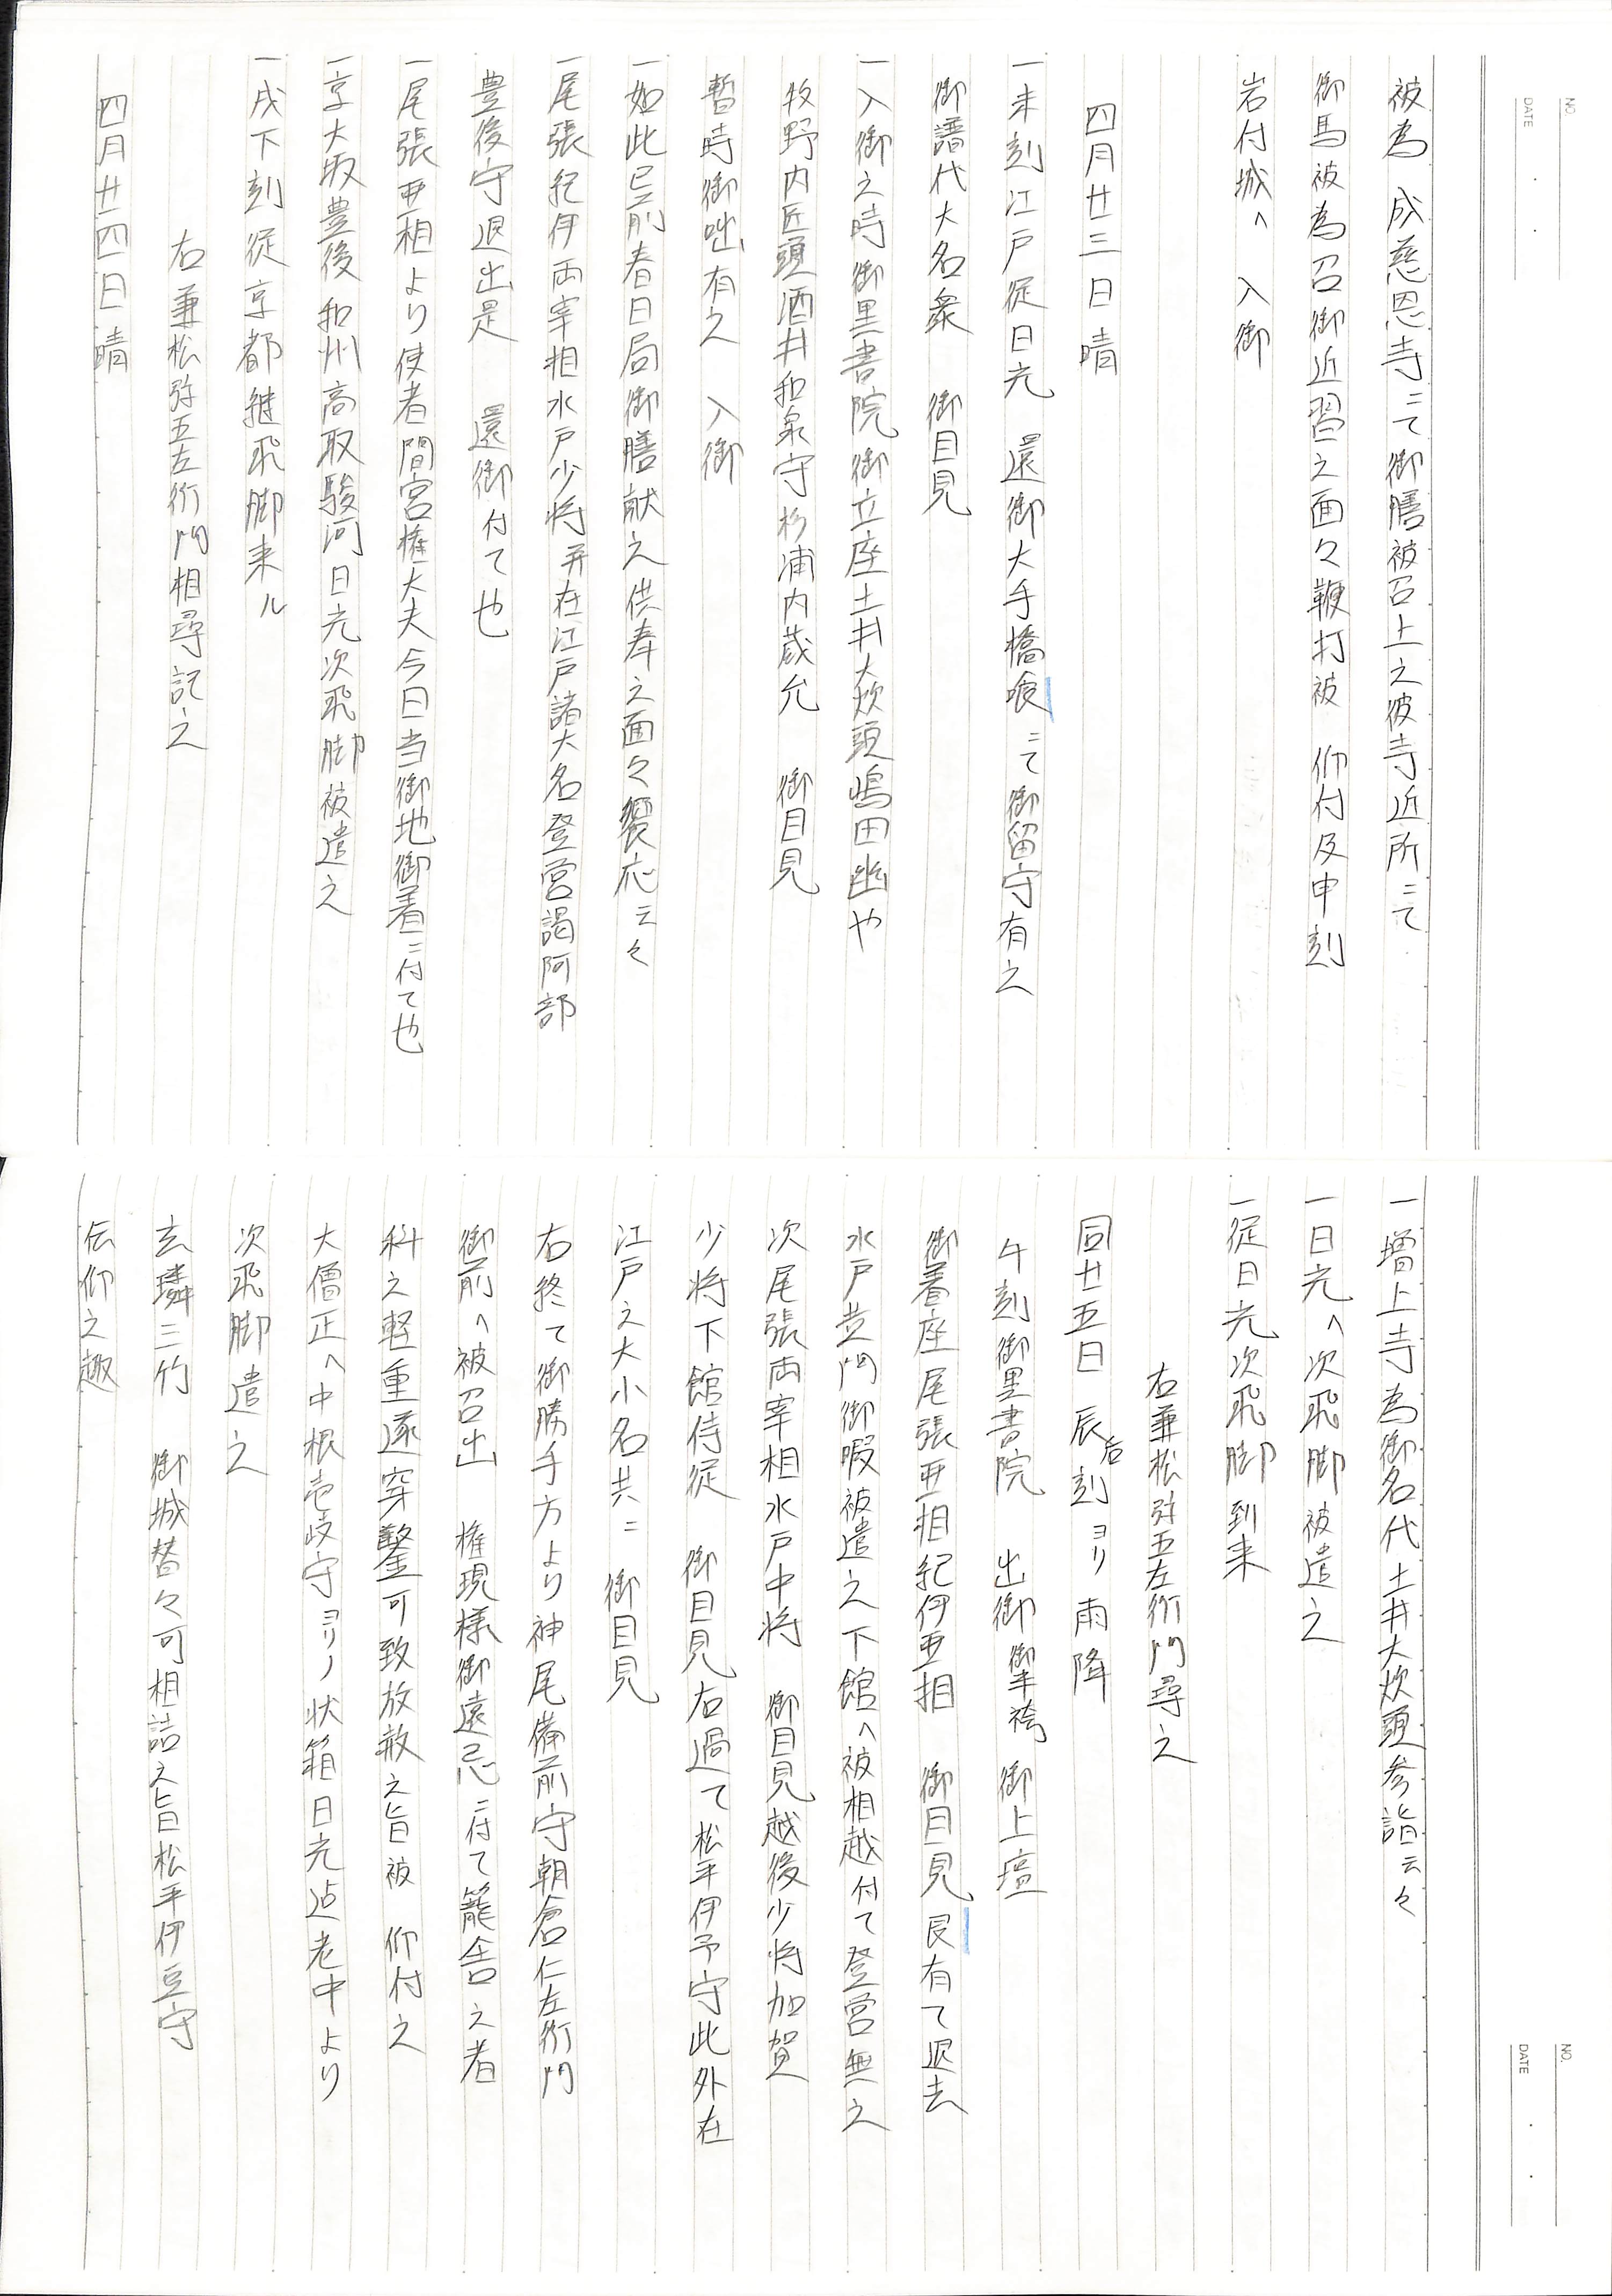 NO.
DATE
被為 成慈恩寺ニて御膳被召上之彼寺近所ニて
御馬被為召御近習之面々鞭打被 仰付及申刻
岩付城へ 入御
四月廿三日晴
一未刻江戸従日光 還御大手橋喰ニて御留守有之
御譜代大名衆 御目見
一入御之時御黒書院御立座土井大炊頭嶋田幽也
牧野内匠頭酒井和泉守杉浦内蔵允 御目見
暫時御咄有之 入御
一如此已前春日局御膳献之供奉之面々饗応云々
一尾張紀伊両宰相水戸少将并在江戸諸大名登営謁阿部
豊後守退出是 還御付て也
一尾張亜相より使者間宮権大夫今日当御地御着ニ付て也
一京大坂豊後和州高取駿河日光次飛脚被遣之
一戌下刻従京都継飛脚来ル
右兼松弥五左衛門相尋記之
四月廿四日晴
NO.
DATE
一増上寺為御名代土井大炊頭参詣云々
一日光へ次飛脚被遣之
一従日光次飛脚到来
右兼松弥五左衛門尋之
同廿五日 辰后刻ヨリ雨降
午刻御黒書院 出御御半袴御上壇
御着座尾張亜相紀伊亜相 御目見良有て退去
水戸黄門御暇被遣之下館へ被相越付て登営無之
次尾張両宰相水戸中将 御目見越後少将加賀
少将下館侍従 御目見右過て松平伊予守此外在
江戸之大小名共ニ 御目見
右終て御勝手方より神尾備前守朝倉仁左衛門
御前へ被召出 権現様御遠忌ニ付て籠舎之者
科之軽重遂穿鑿可致放散之旨被 仰付之
大僧正へ中根壱岐守ヨリノ状箱日光迄老中より
次飛脚遣之
玄璘三竹 御城替々可相詰之旨松平伊豆守
伝仰之趣